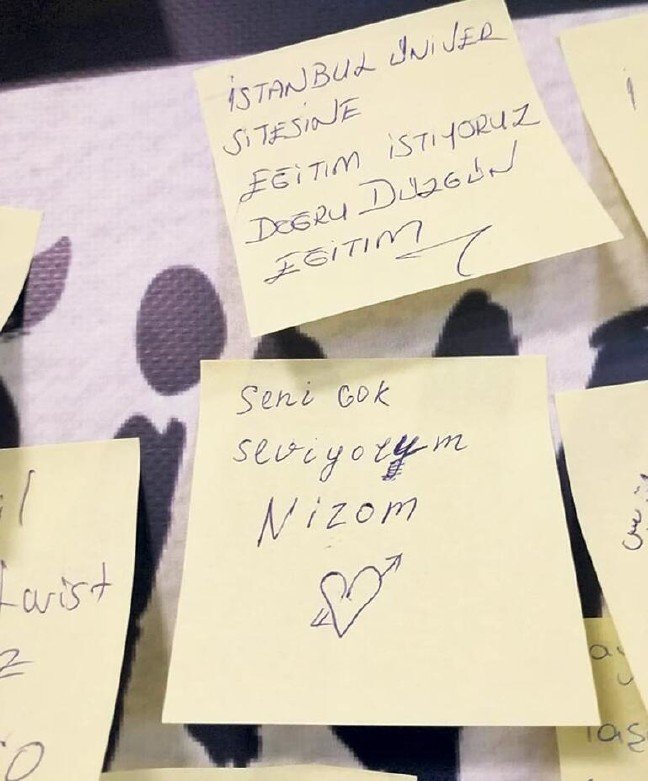 İSTANBUL ÜNİVER
SİTESİNE
EĞİTİM İSTİYORUZ
DOĞRU DÜZGÜN
EĞİTİM
Seni Gok
seviyorym
Nizom